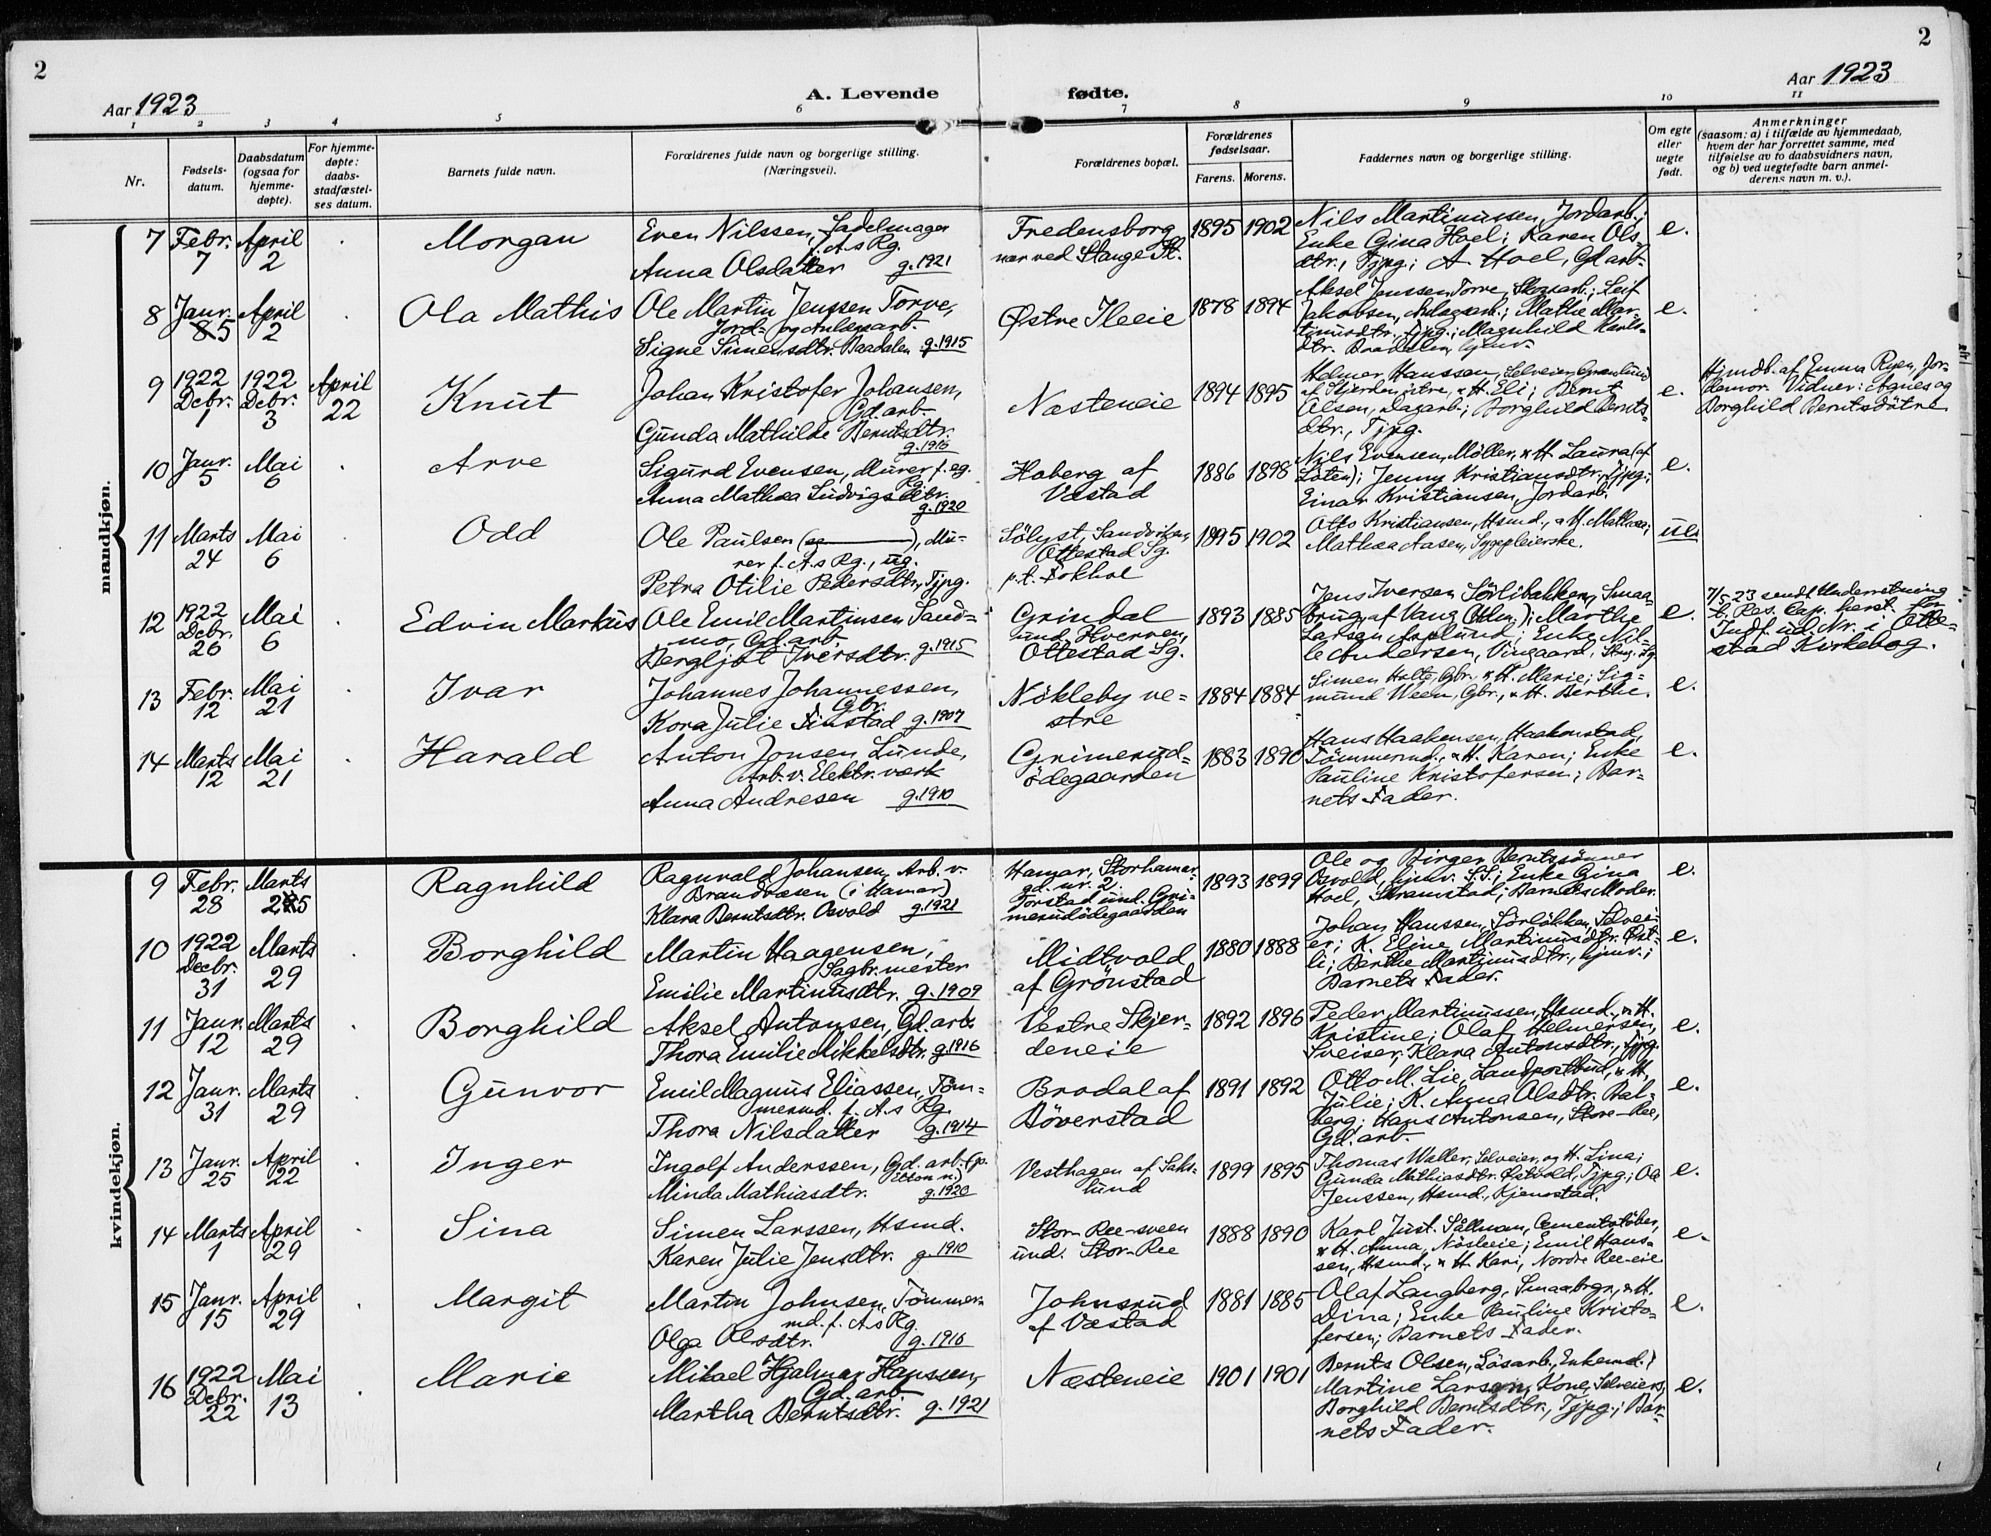 2
2
Aar 1923
A. Levende fødte.
Aar 1923
1 2 3 4 5 6 7 8 9 10 11
Nr.
Fødsels-
datum.
Daabsdatum
(ogsaa for
hjemme-
døpte).
For hjemme-
døpte:
daabs-
stadfæstel-
ses datum.
Barnets fulde navn.
Forældrenes fulde navn og borgerlige stilling.
(Næringsvei).
Forældrenes bopæl.
Forældrenes
fødselsaar.
Farens. Morens.
Faddernes navn og borgerlige stilling.
Om egte
eller
uegte
født.
Anmerkninger
(saasom: a) i tilfælde av hjemmedaab,
hvem der har forrettet samme, med
tilføielse av to daabsvidners navn,
og b) ved uegtefødte barn anmel-
derens navn m. v.).
mandkjøn.
7 Febr. 7 April 2 Morgan
Even Nilssen, Sadelmager
f. A.s Rg.
Anna Olsdatter g. 1921
Fredensborg
nær ved Stange St.
1895 1902
Nils Martinussen, Jordarb.;
Enke Gina Hoel; Karen Ols-
dtr., Tjpg.; A. Hoel, Gd.arb.
e.
8 Janr. 5 April 2 Ola Mathis
Ole Martin Jenssen Torve,
Jord- og Anlægsarb.
Signe Simensdtr. Baadalen g. 1915
Østre Ileeie
1878 1894
Aksel Jenssen Torve, Skogsarb.; Leif
Jakobsen, Anlægsarb.; Mathea Mar-
tinusdtr., Tjpg.; Magnhild Karls-
dtr. Baadalen, hjmv.
e.
9 1922 Debr. 1 1922 Debr. 3 April 22 Knut
Johan Kristofer Johansen,
Gd.arb.
Gunda Mathilde Berntsdtr.
g. 1916
Næsteneie
1894 1895
Helmer Hanssen, Selveier, Grønlund
af Skjerden østre, & H. Eli; Bernt
Olsen, Dagarb.; Borghild Bernts-
dtr., Tjpg.
e.
Hjmdb. af Emma Ryen, Jor-
demor. Vidner: Agnes og
Borghild Berntsdøtre
10 Janr. 5 Mai 6 Arve
Sigurd Evensen, Murer f. eg.
Rg.
Anna Mathea Ludvigsdtr.
g. 1920
Hoberg af
Væstad
1886 1898
Nils Evensen, Møller, & H. Laura (af
Løten); Jenny Kristiansdtr., Tjpg.;
Einar Kristiansen, Jordarb.
e.
11 Marts 24 Mai 6 Odd
Ole Paulsen ( ), Mu-
rer f. A.s Rg., ug.
Petra Otilie Pedersdtr., Tjpg.
Sølyst, Sandviken,
Ottestad Sg.
p.t. Fokhol
1895 1902
Otto Kristiansen, Hsmd., & H. Mathea;
Mathea Aasen, Sygepleierske.
ue.
12 1922 Debr. 26 Mai 6 Edvin Markus
Ole Emil Martinsen Sand-
mo, Gd.arb.
Bergljot Iversdtr. g. 1915
Grindal
und. Hverven,
Ottestad Sg.
1893 1885
Jens Iversen Sørlibakken, Smaa-
brug. af Vang (Oden.); Marthe
Larsen Asplund; Enke Nil-
le Andersen, Vingaard, Stang. Sg.
e.
7/5 23 sendt Underretning
t. Res. Cap. herst. for
Indf. ud. Nr. i Otte-
stad Kirkebog.
13 Febr. 12 Mai 21 Ivar
Johannes Johannessen,
Gbr.
Kora Julie Finstad g. 1907
Nökleby ve-
stre
1884 1884
Simen Holte, Gbr. & H. Marie; Sig-
mund Ween, Gbr., & H. Berthe.
e.
14 Marts 12 Mai 21 Harald
Anton Jonsen Lunde,
Arb. v. Elektr. værk
Anna Andresen g. 1910
Grimerud-
ödegaarden
1883 1890
Hans Haakensen, Haakenstad,
Tömmermd., & H. Karen; Enke
Pauline Kristofersen; Bar-
nets Fader.
e.
kvindekjøn.
9 Febr. 28 Marts 25 Ragnhild
Ragnvald Johansen, Arb. v.
Brandvæsen (i Hamar)
Klara Berntsdtr. Osvold g. 1921
Hamar, Storhamar-
gd. nr. 2.
Torstad und. Gri-
merudödegaarden
1893 1899
Ole og Birger Berntssönner
Osvold, hjmv. S.S.; Enke Gina
Hoel, Skramstad; Barnets Moder.
e.
10 1922 Decbr. 31 Marts 29 Borghild
Martin Haagensen,
Sagbr.mester
Emilie Martinusdtr. g. 1909
Midtvold
af Grönstad
1880 1888
Johan Hanssen, Sörlökken, Selvei-
er; K. Eline Martinusdtr. Öst-
li; Berthe Martinusdtr., hjmv.;
Barnets Fader.
e.
11 Janr. 12 Marts 29 Borghild
Aksel Antonsen, Gd.arb.
Thora Emilie Mikkelsdtr. g. 1916
Vestre Skjer-
deneie
1892 1896
Peder Martinussen, Hsmd., & H.
Kristine; Olaf Helmersen,
Sveiser; Klara Antonsdtr., Tjpg.
e.
12 Janr. 31 Marts 29 Gunvor
Emil Magnus Eliassen, Töm-
mermd. f. A.s Rg.
Thora Nilsdatter g. 1914
Brodal af
Böverstad
1891 1892
Otto M. Lie, Landpostbud, & H.
Julie; K. Anna Olsdtr. Bal-
berg; Hans Antonsen, Store-Ree,
Gd.arb.
e.
13 Janr. 25 April 22 Inger
Ingolf Anderssen, Gd. arb. (p.
Minda Mathiasdtr. g. 1920
Vesthagen af Saks-
lund
1899 1895
Thomas Waller, Selveier, og H. Lina;
Gunda Mathiasdtr. Östvold, Tjpg.; Ola
Jenssen, Hsmd., Kjenestad.
e.
14 Marts 1 April 29 Sina
Simen Larssen, Hsmd.
Karen Julie Jensdtr. g. 1910
Stor-Ree-sveen
und. Stor-Ree
1888 1890
Karl Just. Sållman, Cementstöber,
& H. Anna, Nösleeie; Emil Hans-
sen, Hsmd., & H. Kari, Nordre Ree-eie
e.
15 Janr. 15 April 29 Margit
Martin Johnsen, Tömmer-
md. f. A.s Rg.
Olga Olsdtr. g. 1916
Johnsrud
af Væstad
1881 1885
Olaf Langberg, Smaabrgr., & H.
Dina; Enke Pauline Kristo-
fersen; Barnets Fader.
e.
16 1922 Debr. 22 Mai 13 Marie
Mikael Hjalmar Hanssen,
Gd.arb.
Martha Berntsdtr. g. 1921
Næsteneie
1901 1901
Bernts Olsen, Lösarb., Enkemd.;
Martine Larsen, Kone, Selveiers;
Borghild Berntsdtr., Tjpg.; Bar-
nets Fader.
e.